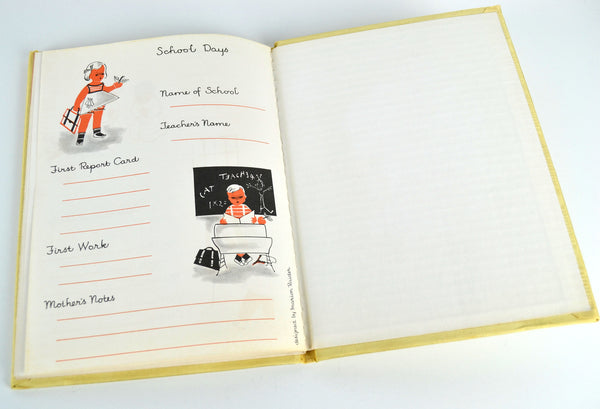 School Days
Name of School
Teacher's Name
First Report Card
CAT
1x2=
First Work
Mother's Notes
designed by Marion